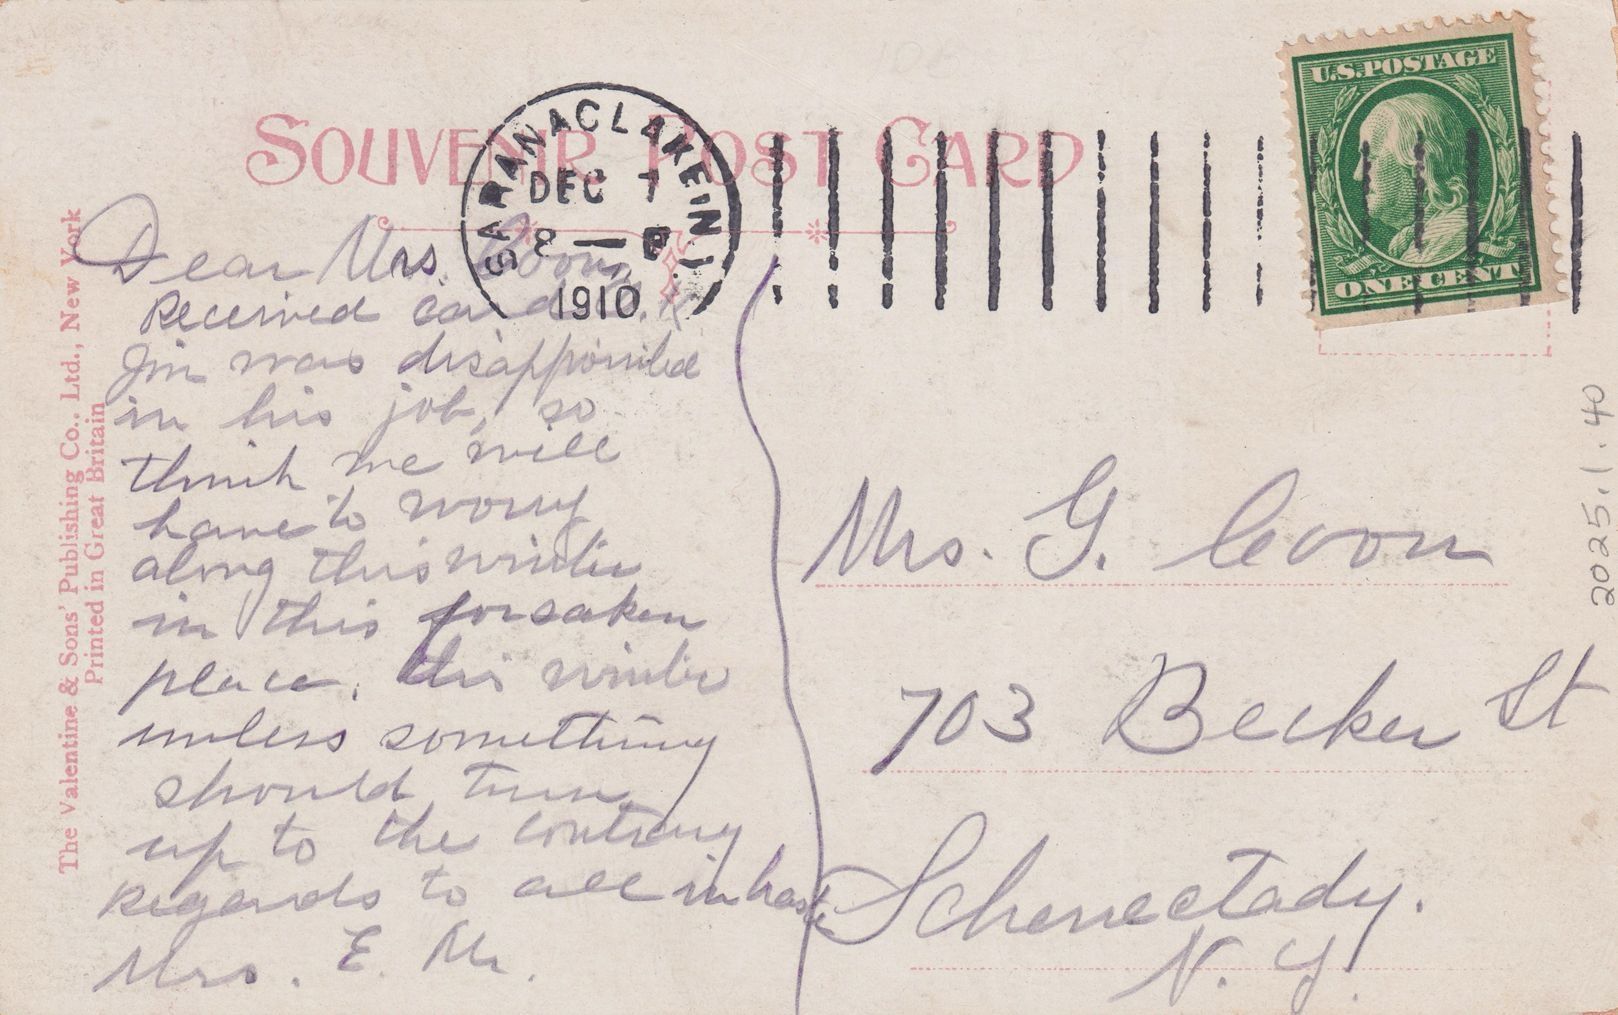 SOUVENIR POST CARD
SARANAC LAKE, N.Y.
DEC 7
8 —
1910
U.S. POSTAGE
ONE CENT
The Valentine & Sons' Publishing Co., Ltd., New York
Printed in Great Britain
Dear Mrs. Coon,
Received card.
Jim was disappointed
in his job, so
think we will
have to worry
along this winter
in this forsaken
place. this winter
unless something
should turn
up to the contrary
Regards to all in haste
Mrs. E. M.
Mrs. G. Coon
703 Becker St
Schenectady.
N. Y.
2025.1.40